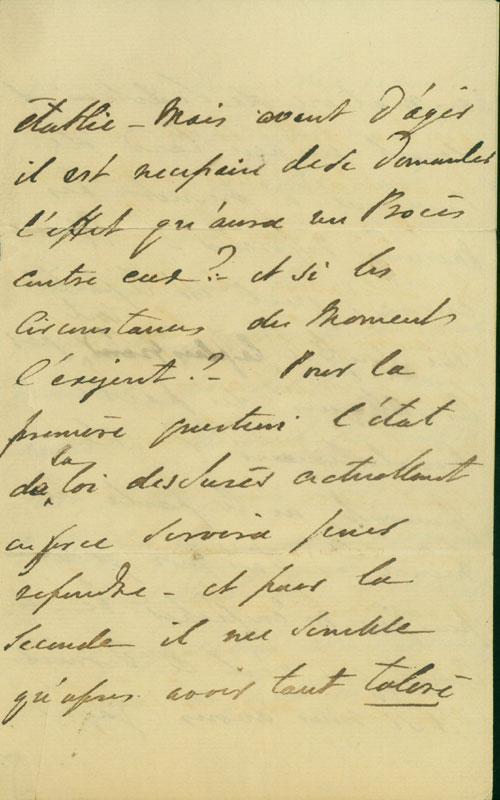 établie – Mais avant d'agir
il est necessaire de se demander
l'effet qu'aura un Procès
contre eux ? – et si les
Circonstances du Moment
l'exigent ? – Pour la
première question l'état
de la loi des Jurés actuellement
en force servira pour
repondre – et pour la
seconde il me semble
qu'apres avoir tant toleré